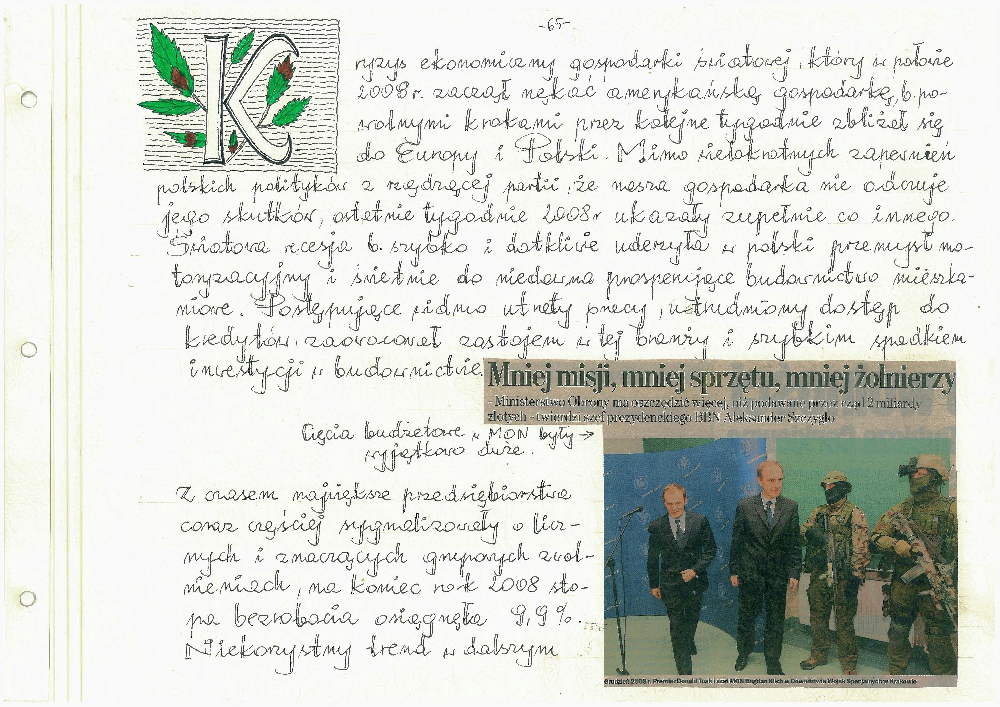 -65-
Kryzys ekonomiczny gospodarki światowej, który w połowie
2008 r. zaczął nękać amerykańską gospodarkę, b. po-
wolnymi krokami przez kolejne tygodnie zbliżał się
do Europy i Polski. Mimo wielokrotnych zapewnień
polskich polityków z rządzącej partii, że nasza gospodarka nie odczuje
jego skutków, ostatnie tygodnie 2008 r ukazały zupełnie co innego.
Światowa recesja b. szybko i dotkliwie uderzyła w polski przemysł mo-
toryzacyjny i świetnie do niedawna prosperujące budownictwo mieszka-
niowe. Postępujące widmo utraty pracy, utrudniony dostęp do
kredytów zaowocował zastojem w tej branży i szybkim spadkiem
inwestycji w budownictwie.
Mniej misji, mniej sprzętu, mniej żołnierzy
- Ministerstwo Obrony ma oszczędzić więcej, niż podawane przez rząd 2 miliardy
złotych - twierdzi szef prezydenckiego BBN Aleksander Szczygło
Cięcia budżetowe w MON były →
wyjątkowo duże.
Z czasem największe przedsiębiorstwa
coraz częściej sygnalizowały o licz-
nych i znaczących grupowych zwol-
nieniach, na koniec rok 2008 sto-
pa bezrobocia osiągnęła 9,9%.
Niekorzystny trend w dalszym
Grudzień 2008 r. Premier Donald Tusk i szef MON Bogdan Klich w Dowództwie Wojsk Specjalnych w Krakowie